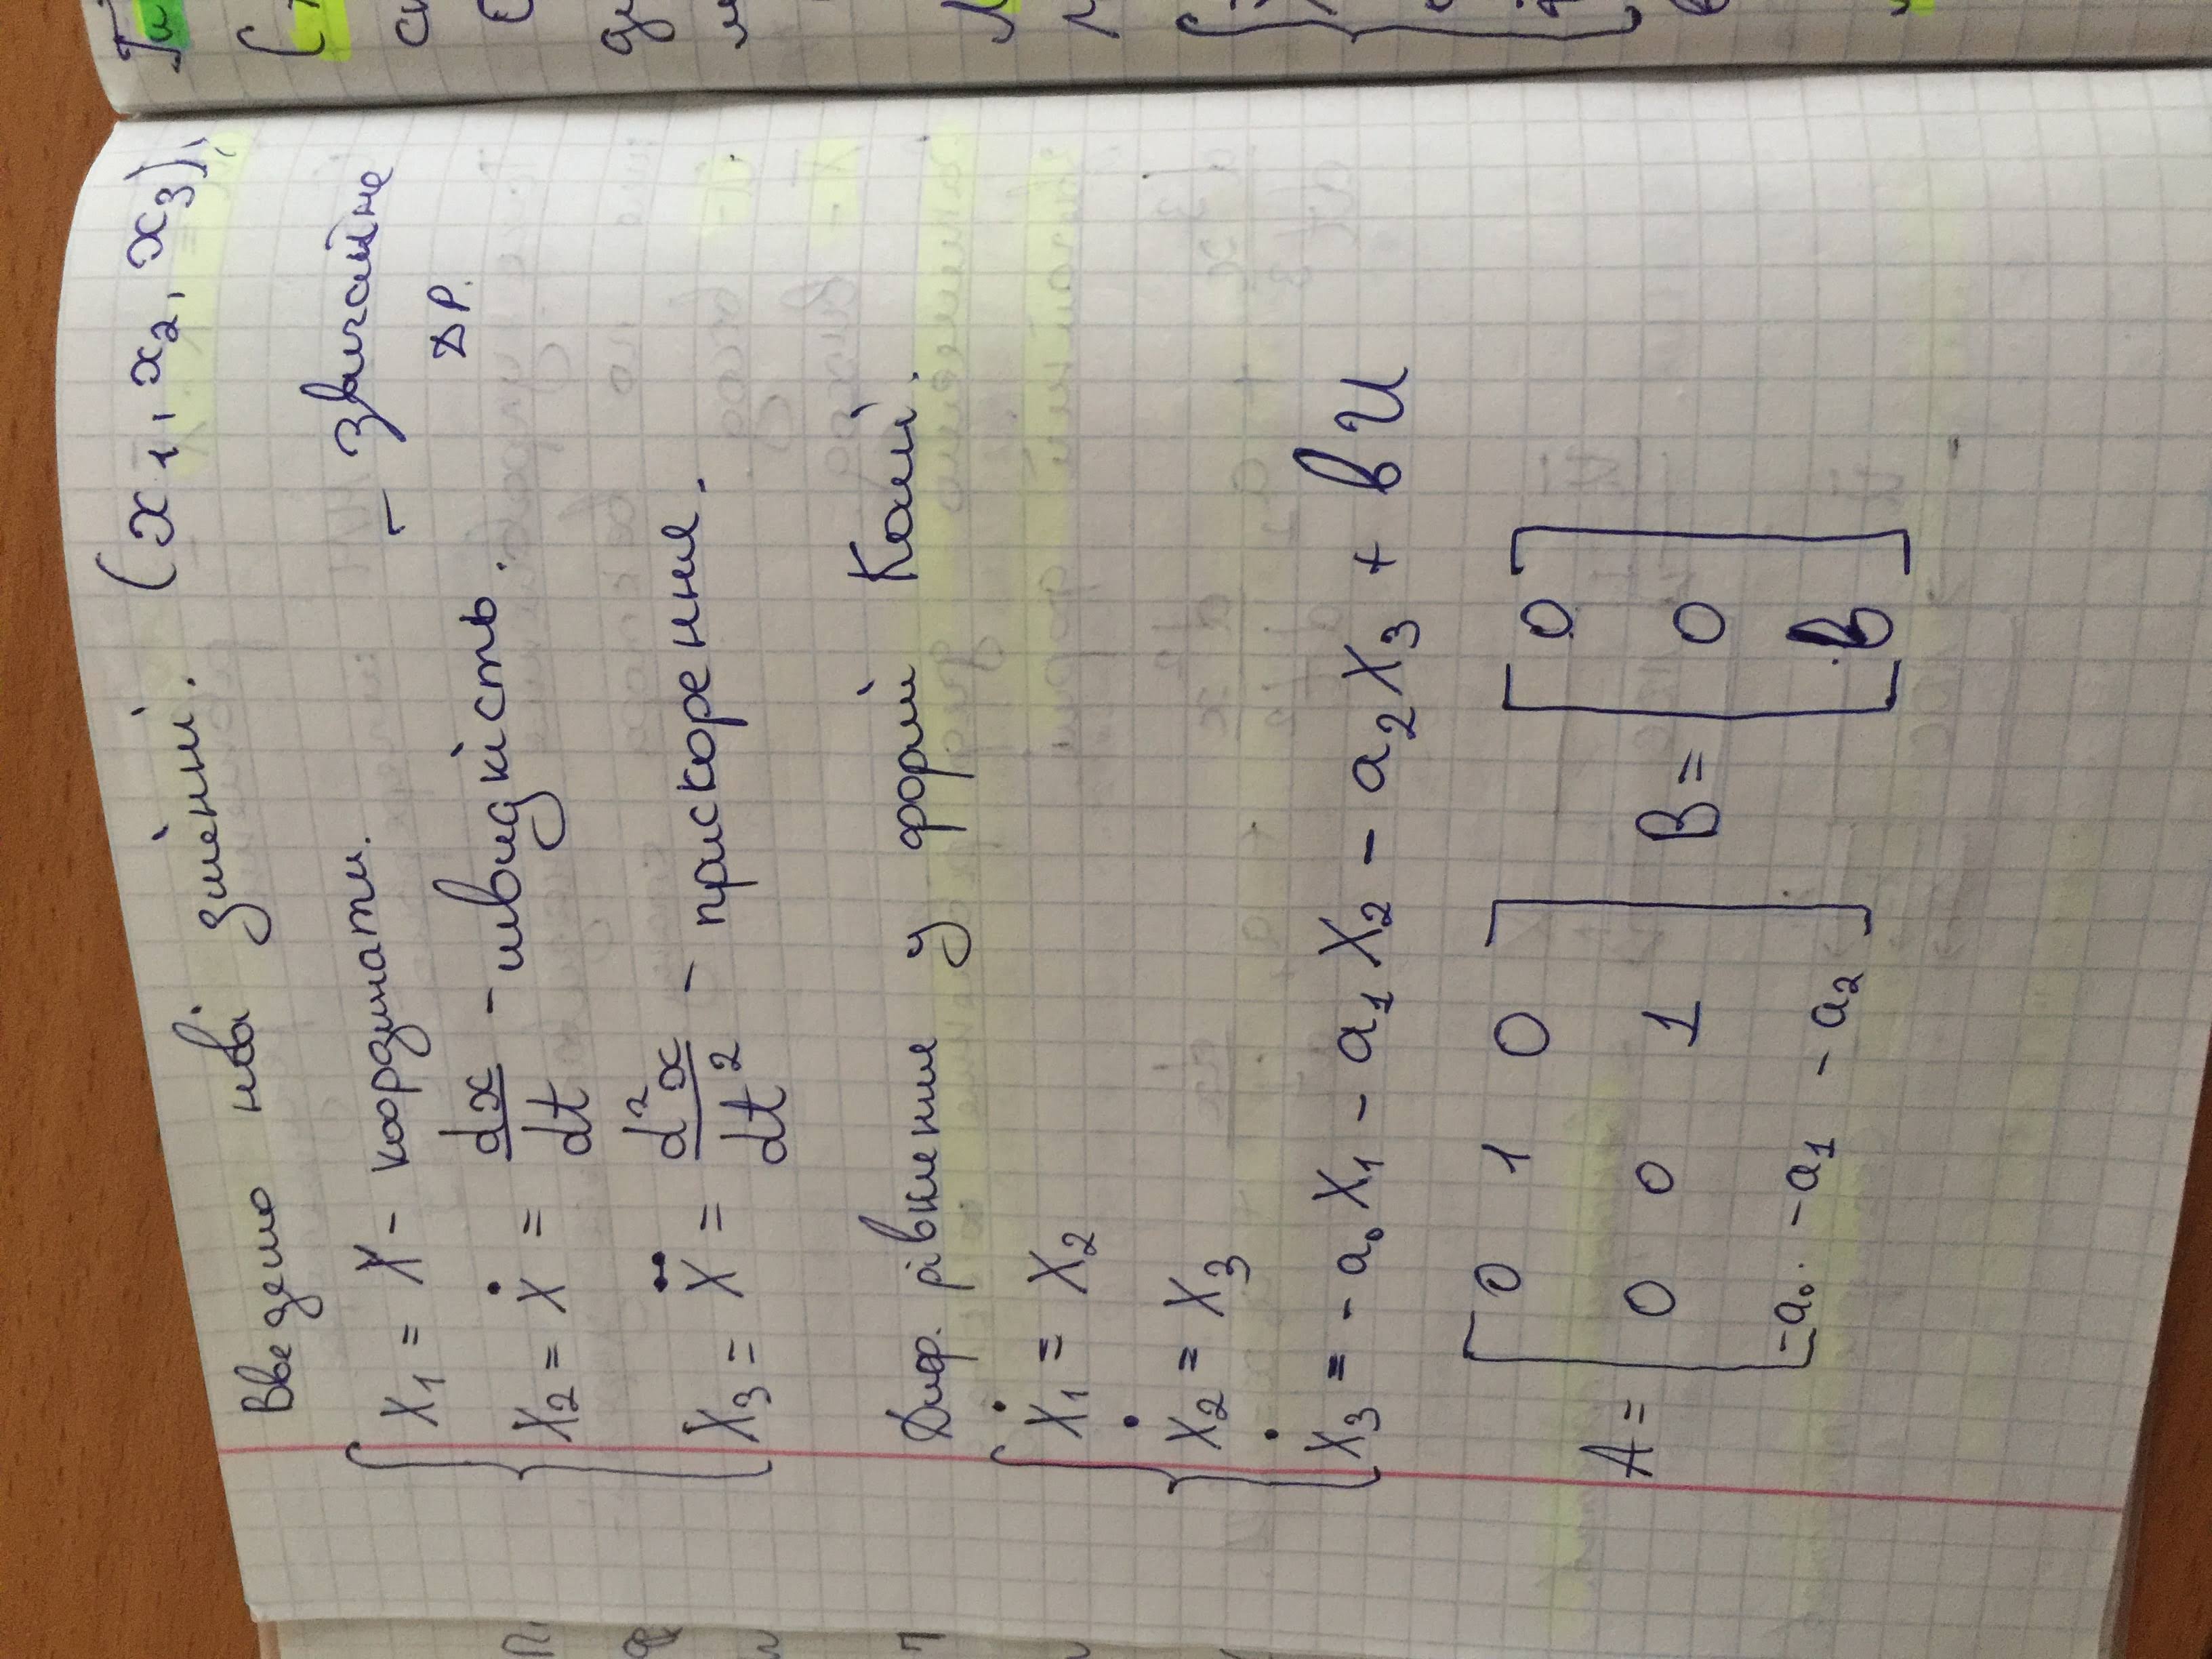 Введемо нові змінні. (x₁, x₂, x₃);
x₁ = x - координати.
- звичайне ДР.
x₂ = ẋ = dx/dt - швидкість.
x₃ = ẍ = d²x/dt² - прискорення.
Диф. рівняння у формі Коші.
ẋ₁ = x₂
ẋ₂ = x₃
ẋ₃ = -a₀x₁ - a₁x₂ - a₂x₃ + bU
A = [0 1 0
0 0 1
-a₀ -a₁ -a₂]
B = [0
0
b]